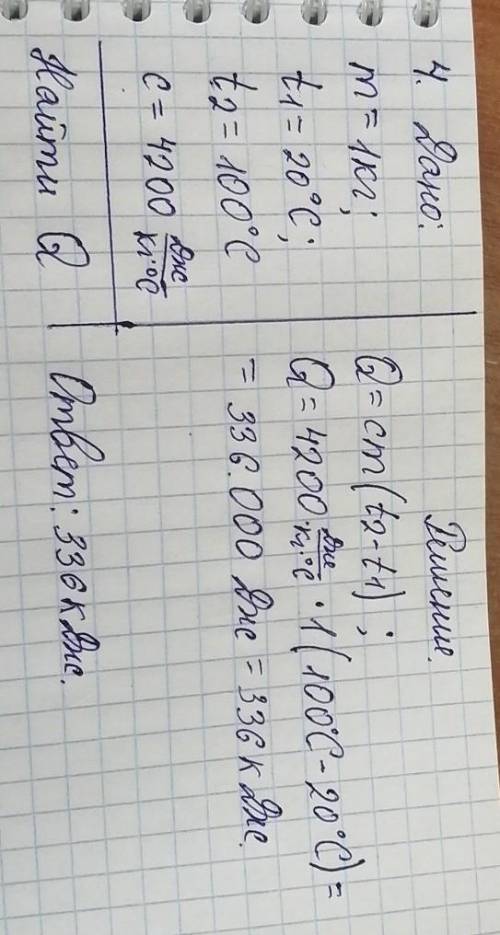 4. Дано:
m = 1кг;
t1 = 20°C;
t2 = 100°C
c = 4200 Дж/кг·°C
Найти Q
Решение.
Q = cm(t2-t1);
Q = 4200 Дж/кг·°C · 1(100°C - 20°C) =
= 336.000 Дж = 336 кДж.
Ответ: 336 кДж.